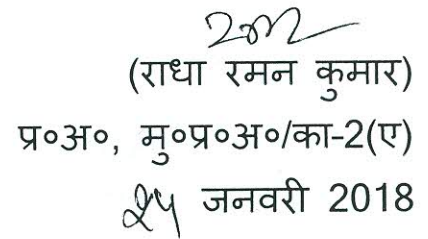 (राधा रमन कुमार)
प्र०अ०, मु०प्र०अ०/का-2(ए)
२५ जनवरी 2018